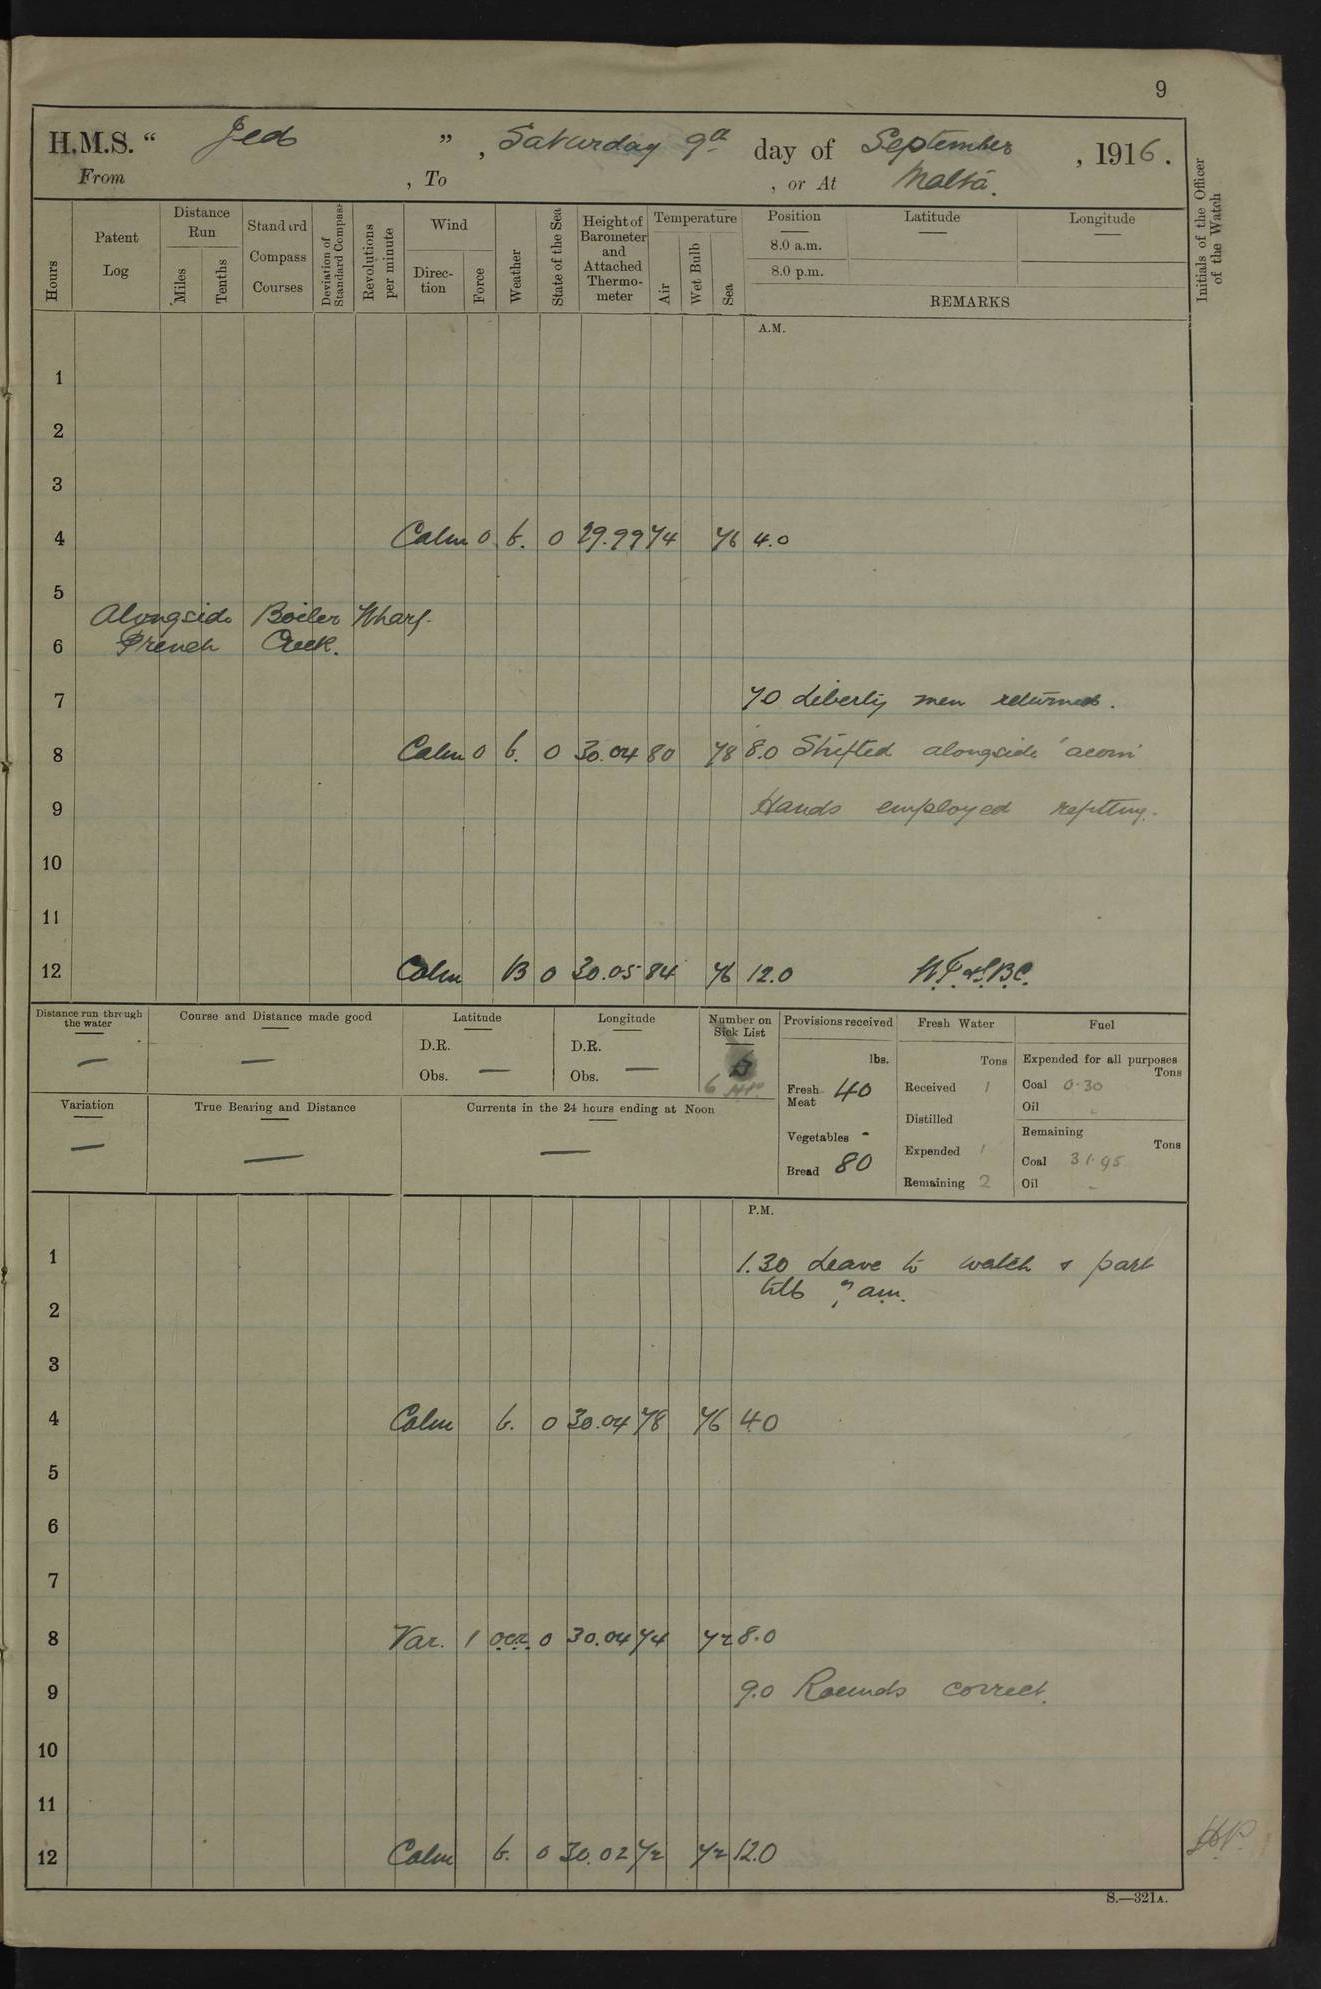 9
H.M.S. " Jed " , Saturday 9th day of September , 1916.
From , To , or At Malta.
Hours
Patent Log
Distance Run
Miles
Tenths
Standard Compass Courses
Deviation of Standard Compass
Revolutions per minute
Wind
Direction
Force
Weather
State of the Sea
Height of Barometer and Attached Thermometer
Temperature
Air
Wet Bulb
Sea
Position
8.0 a.m.
8.0 p.m.
Latitude
—
Longitude
—
REMARKS
Initials of the Officer of the Watch
A.M.
1
2
3
4 Calm 0 b. 0 29.99 74 76 4.0
5
Alongside Boiler Wharf.
6 French Creek.
7 70 Liberty men returned.
8 Calm 0 b. 0 30.04 80 78 8.0 Shifted alongside 'acorn'
9 Hands employed refitting.
10
11
12 Calm B 0 30.05 84 76 12.0
Distance run through the water
—
Course and Distance made good
—
Latitude
D.R.
Obs. —
Longitude
D.R.
Obs. —
Number on Sick List
6
Provisions received
lbs.
Fresh Meat 40
Vegetables -
Bread 80
Fresh Water
Tons
Received 1
Distilled
Expended 1
Remaining 2
Fuel
Expended for all purposes
Tons
Coal 0.30
Oil -
Remaining
Tons
Coal 31.95
Oil -
Variation
—
True Bearing and Distance
—
Currents in the 24 hours ending at Noon
—
P.M.
1 1.30 Leave to watch & part
till 7 am.
2
3
4 Calm b. 0 30.04 78 76 4.0
5
6
7
8 Var. 1 0 30.04 74 72 8.0
9 9.0 Rounds correct.
10
11
12 Calm b. 0 30.02 72 72 12.0
S.—321A.